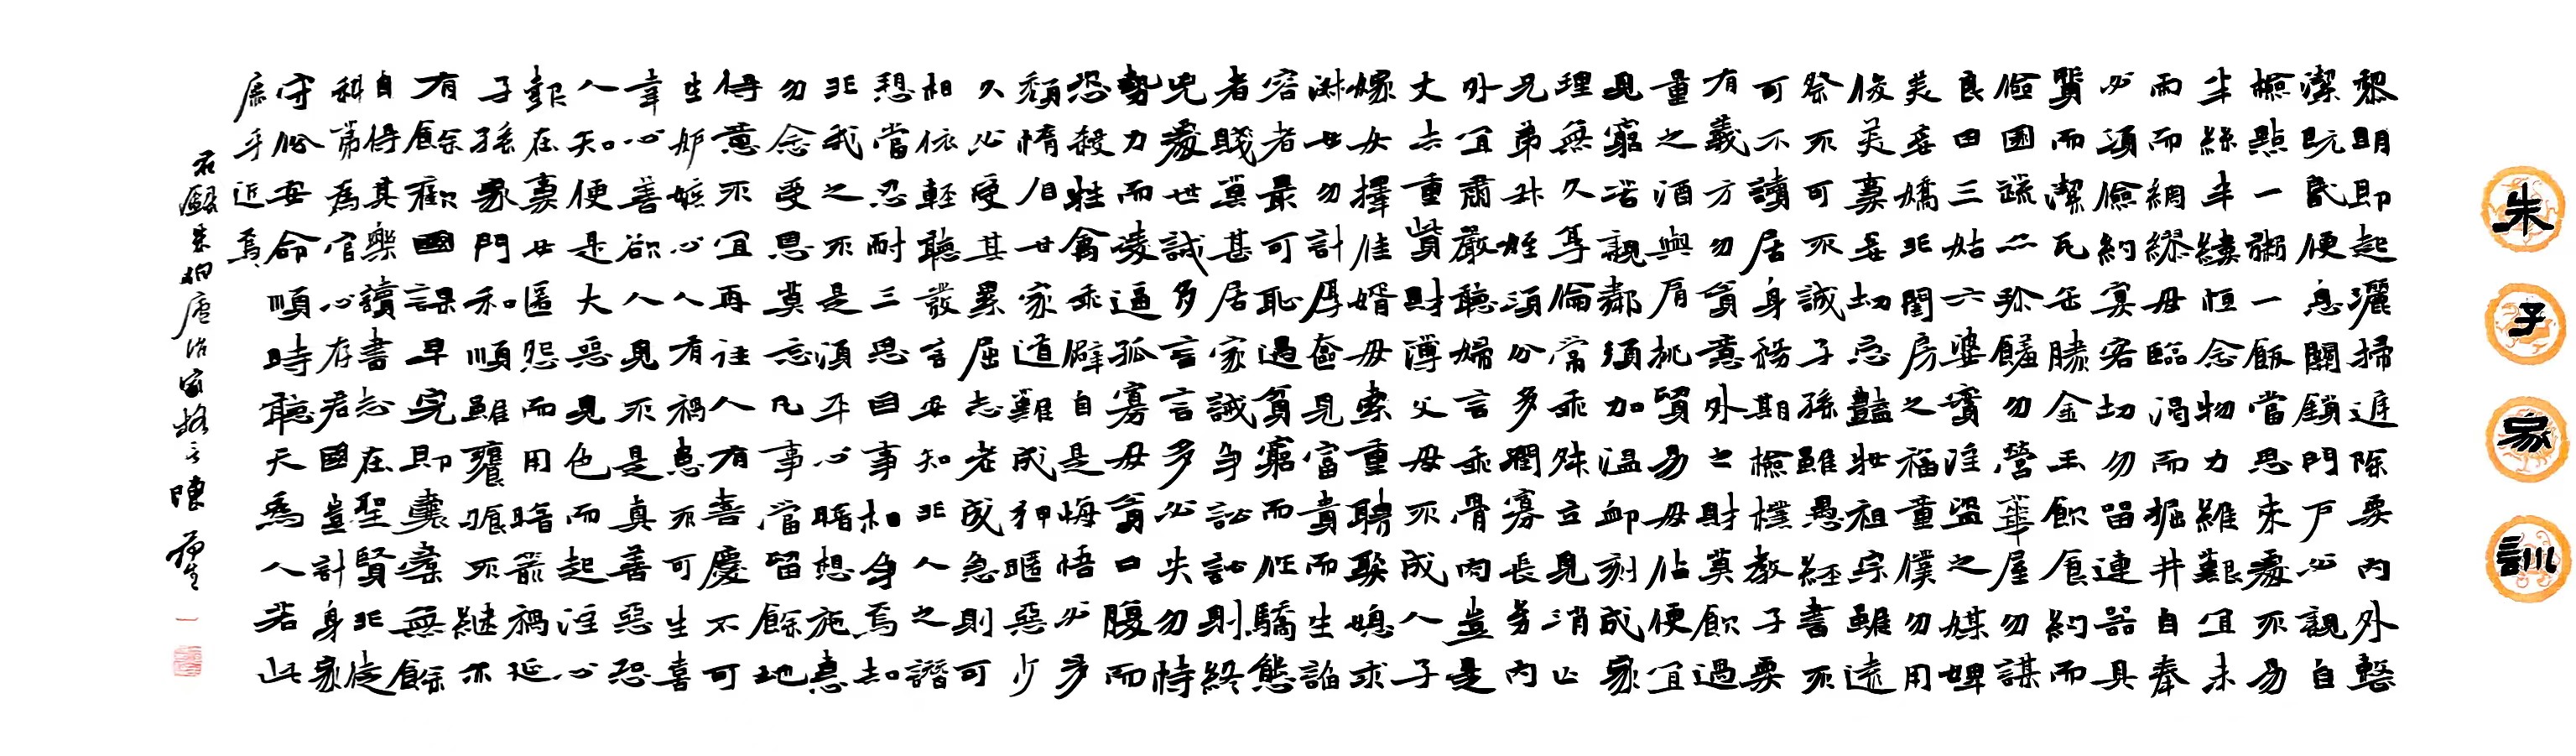 朱子家訓
黎明即起灑掃庭除要內外整
潔既昏便息關鎖門戶必親自
檢點一粥一飯當思來處不易
半絲半縷恒念物力維艱宜未
雨而綢繆毋臨渴而掘井自奉
必須儉約宴客切勿留連器具
質而潔瓦缶勝金玉飲食約而
儉園蔬亦珍饈勿營華屋勿謀
良田三姑六婆實淫盜之媒婢
美妾嬌非閨房之福童僕勿用
俊美妻妾切忌豔妝祖宗雖遠
祭不可不誠子孫雖愚經書不
可不讀居身務期檢樸教子要
有義方勿貪意外之財莫飲過
量之酒與肩挑貿易毋佔便宜
見窮苦親鄰須加溫卹刻成家
理無久享倫常乖舛立見消亡
兄弟叔姪須分多潤寡長幼內
外宜肅嚴聽婦言乖骨肉豈是
丈夫重貲財薄父母不成人子
嫁女擇佳婿毋索重聘娶媳求
淑女勿計厚奩見富貴而生諂
容者最可恥遇貧窮而作驕態
者賤莫甚居家誡爭訟訟則終
兇處世誡多言言多必失勿恃
勢力而凌逼孤寡毋貪口腹而
恣殺牲禽乖僻自是悔悟必多
頹惰自甘家道難成狎暱惡少
久必受其累屈志老成急則可
相依輕聽發言安知非人之譖
愬當忍耐三思因事相爭焉知
非我之不是須平心暗想施惠
勿念受恩莫忘凡事當留餘地
得意不宜再往人有喜慶不可
生妒嫉心人有禍患不可生喜
幸心善欲人見不是真善惡恐
人知便是大惡見色而起淫心
報在妻女匿怨而用暗箭禍延
子孫家門和順雖饔飧不繼亦
有餘歡國課早完即囊橐無餘
自得其樂讀書志在聖賢非徒
科第為官心存君國豈計身家
守份安命順時聽天為人若此
庶乎近焉
右錄朱柏廬治家格言陳